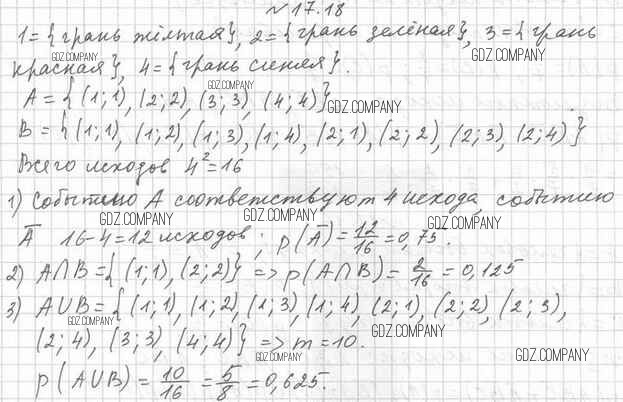 № 17.18
1 = {грань жёлтая}, 2 = {грань зелёная}, 3 = {грань
GDZ.COMPANY GDZ.COMPANY
красная}, 4 = {грань синяя}.
GDZ.COMPANY
A = {(1;1), (2;2), (3;3), (4;4)}
GDZ.COMPANY
B = {(1;1), (1;2), (1;3), (1;4), (2;1), (2;2), (2;3), (2;4)}
Всего исходов 4² = 16
1) Событию A соответствуют 4 исхода, событию
GDZ.COMPANY GDZ.COMPANY GDZ.COMPANY
Ā 16-4=12 исходов; p(Ā) = 12/16 = 0,75.
2) A∩B = {(1;1), (2;2)} => p(A∩B) = 2/16 = 0,125
3) A∪B = {(1;1), (1;2), (1;3), (1;4), (2;1), (2;2), (2;3),
GDZ.COMPANY
(2;4), (3;3), (4;4)} => m = 10.
GDZ.COMPANY
GDZ.COMPANY GDZ.COMPANY
p(A∪B) = 10/16 = 5/8 = 0,625.